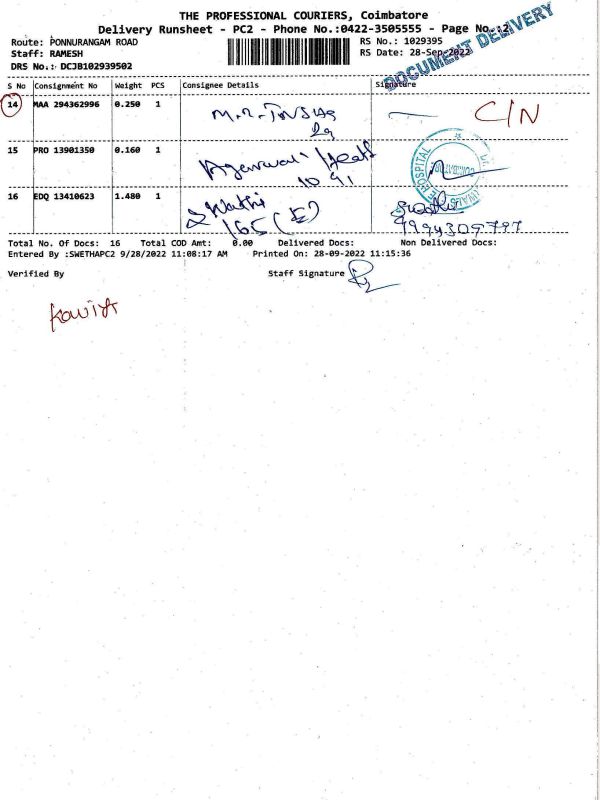 THE PROFESSIONAL COURIERS, Coimbatore
Delivery Runsheet - PC2 - Phone No.:0422-3505555 - Page No.:2
DOCUMENT DELIVERY
Route: PONNURANGAM ROAD RS No.: 1029395
Staff: RAMESH RS Date: 28-Sep-2022
DRS No.: DCJB102939502
S No Consignment No Weight PCS Consignee Details Signature
14 MAA 294362996 0.250 1 C/N
15 PRO 13901350 0.160 1 Agarwal
HOSPITAL
COIMBATORE
16 EDQ 13410623 1.480 1 Swathi
165 (E) 9994309797
Total No. Of Docs: 16 Total COD Amt: 0.00 Delivered Docs: Non Delivered Docs:
Entered By :SWETHAPC2 9/28/2022 11:08:17 AM Printed On: 28-09-2022 11:15:36
Verified By Staff Signature